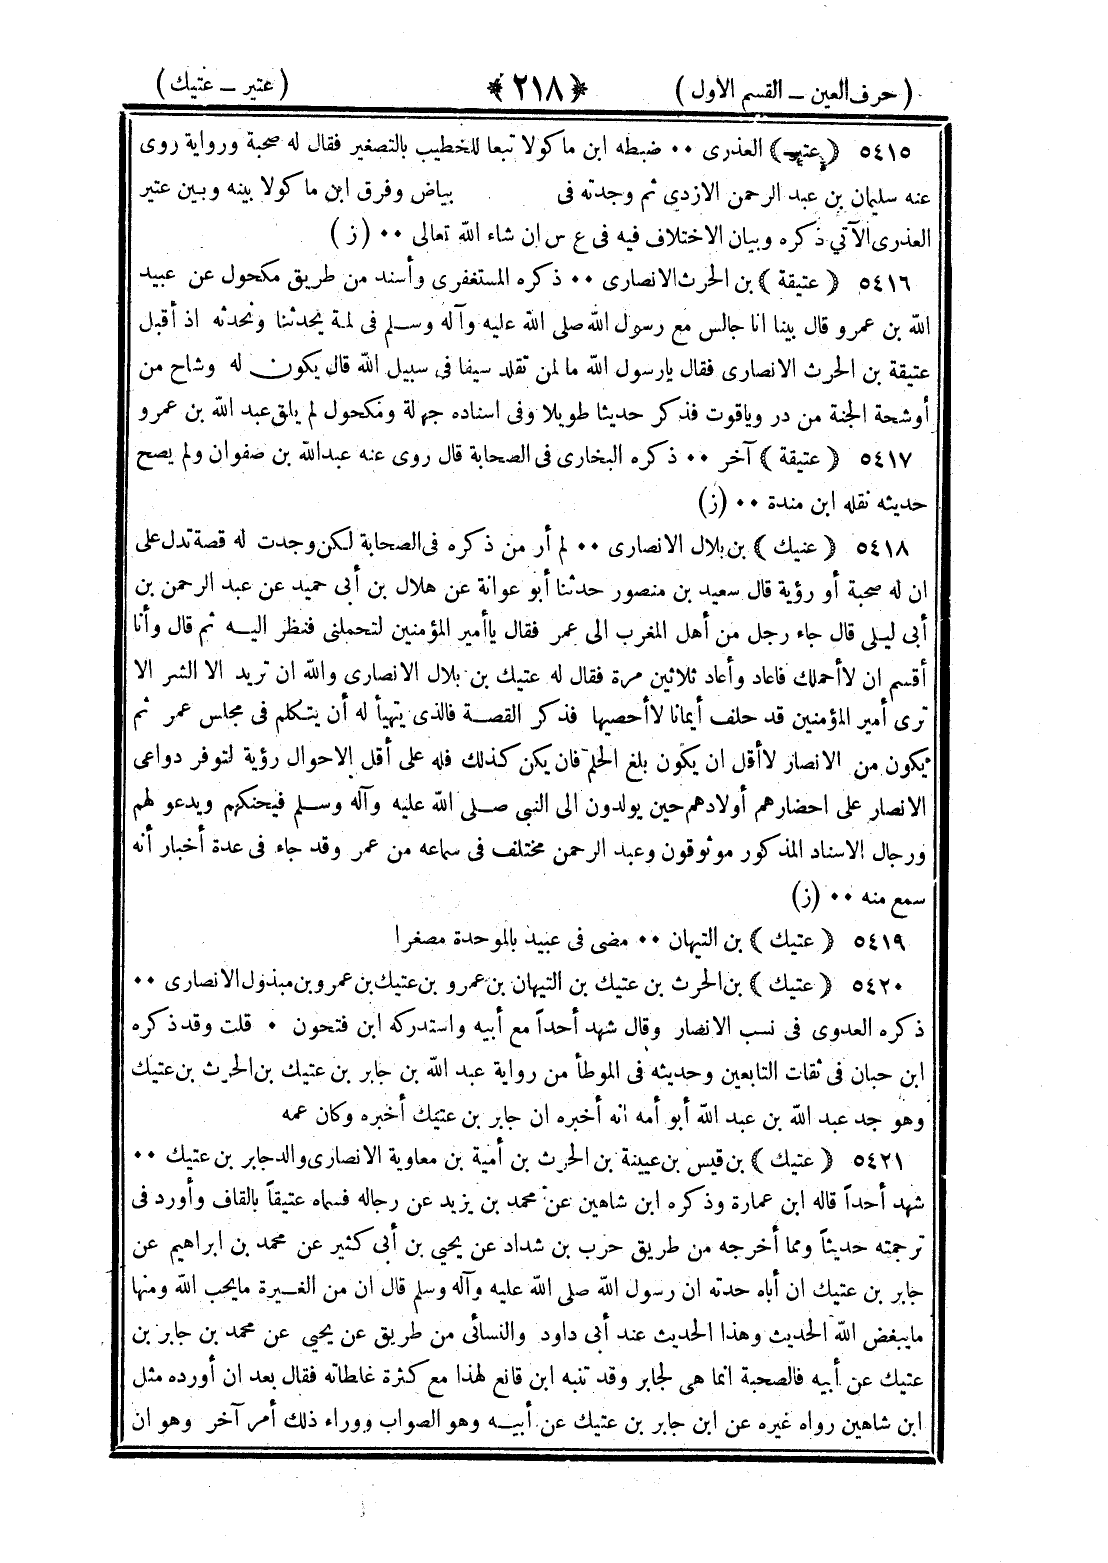 ( حرف العين ـ القسم الأول ) ﴿ ٢١٨ ﴾ ( عتير ـ عتيك )
٥٤١٥ ﴿ عتير ﴾ العذرى ٠٠ ضبطه ابن ماكولا تبعا للخطيب بالتصغير فقال له صحبة ورواية روى
عنه سليمان بن عبد الرحمن الازدي ثم وجدته فى بياض وفرق ابن ماكولا بينه وبين عتير
العذرى الآتي ذكره وبيان الاختلاف فيه فى ع س ان شاء الله تعالى ٠٠ (ز)
٥٤١٦ ﴿ عتيقة ﴾ بن الحرث الانصارى ٠٠ ذكره المستغفرى وأسند من طريق مكحول عن عبيد
الله بن عمرو قال بينا انا جالس مع رسول الله صلى الله عليه وآله وسلم فى لمة يحدثنا ونحدثه اذ أقبل
عتيقة بن الحرث الانصارى فقال يارسول الله ما لمن تقلد سيفا فى سبيل الله قال يكون له وشاح من
أوشحة الجنة من در وياقوت فذكر حديثا طويلا وفى اسناده جهالة ومكحول لم يلق عبد الله بن عمرو
٥٤١٧ ﴿ عتيقة ﴾ آخر ٠٠ ذكره البخارى فى الصحابة قال روى عنه عبدالله بن صفوان ولم يصح
حديثه نقله ابن مندة ٠٠ (ز)
٥٤١٨ ﴿ عتيك ﴾ بن بلال الانصارى ٠٠ لم أر من ذكره فى الصحابة لكن وجدت له قصة تدل على
ان له صحبة أو رؤية قال سعيد بن منصور حدثنا أبو عوانة عن هلال بن أبى حميد عن عبد الرحمن بن
أبى ليلى قال جاء رجل من أهل المغرب الى عمر فقال ياأمير المؤمنين لتحملنى فنظر اليه ثم قال وأنا
أقسم ان لاأحملك فاعاد وأعاد ثلاثين مرة فقال له عتيك بن بلال الانصارى والله ان تريد الا الشر الا
ترى أمير المؤمنين قد حلف أيمانا لاأحصيها فذكر القصة فالذى يتهيأ له أن يتكلم فى مجلس عمر ثم
يكون من الانصار لاأقل ان يكون بلغ الحلم فان يكن كذلك فله على أقل الاحوال رؤية لتوفر دواعى
الانصار على احضارهم أولادهم حين يولدون الى النبي صلى الله عليه وآله وسلم فيحنكهم ويدعو لهم
ورجال الاسناد المذكور موثوقون وعبد الرحمن مختلف فى سماعه من عمر وقد جاء فى عدة أخبار أنه
سمع منه ٠٠ (ز)
٥٤١٩ ﴿ عتيك ﴾ بن التيهان ٠٠ مضى فى عبيد بالموحدة مصغرا
٥٤٢٠ ﴿ عتيك ﴾ بن الحرث بن عتيك بن التيهان بن عمرو بن عتيك بن عمرو بن مبذول الانصارى ٠٠
ذكره العدوى فى نسب الانصار وقال شهد أحداً مع أبيه واستدركه ابن فتحون ٠ قلت وقد ذكره
ابن حبان فى ثقات التابعين وحديثه فى الموطأ من رواية عبد الله بن جابر بن عتيك بن الحرث بن عتيك
وهو جد عبد الله بن عبد الله أبو أمه انه أخبره ان جابر بن عتيك أخبره وكان عمه
٥٤٢١ ﴿ عتيك ﴾ بن قيس بن عيينة بن الحرث بن أمية بن معاوية الانصارى والد جابر بن عتيك ٠٠
شهد أحداً قاله ابن عمارة وذكره ابن شاهين عن محمد بن يزيد عن رجاله فسماه عتيقاً بالقاف وأورد فى
ترجمته حديثاً ومما أخرجه من طريق حرب بن شداد عن يحيي بن أبى كثير عن محمد بن ابراهيم عن
جابر بن عتيك ان أباه حدثه ان رسول الله صلى الله عليه وآله وسلم قال ان من الغيرة مايحب الله ومنها
مايبغض الله الحديث وهذا الحديث عند أبى داود والنسائى من طريق عن يحيي عن محمد بن جابر بن
عتيك عن أبيه فالصحبة انما هى لجابر وقد تنبه ابن قانع لهذا مع كثرة غلطاته فقال بعد ان أورده مثل
ابن شاهين رواه غيره عن ابن جابر بن عتيك عن أبيه وهو الصواب ووراء ذلك أمر آخر وهو ان